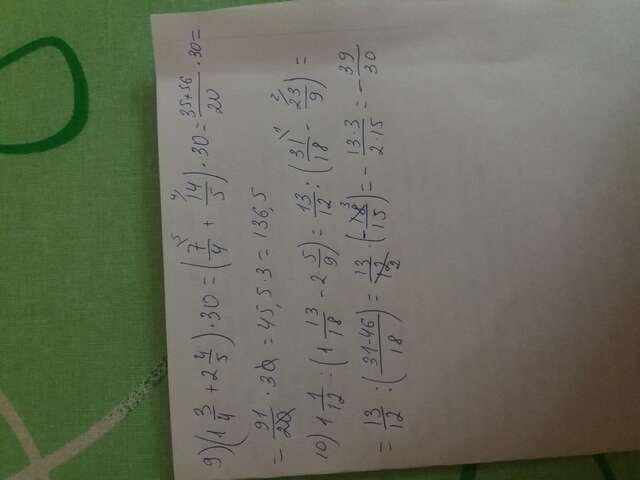 9) (1 3/4 + 2 4/5) · 30 = (7/4 \5 + 14/5 4/) · 30 = 35+56/20 · 30 =
= 91/20 · 30 = 45,5 · 3 = 136,5
10) 1 1/12 : (1 13/18 - 2 5/9) = 13/12 : (31/18 \1 - 23/9 2/) =
= 13/12 : (31-46/18) = 13/12 2 · (- 18 3/15) = - 13·3/2·15 = - 39/30